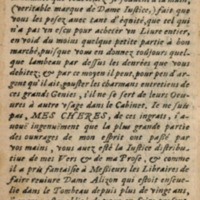 (veritable marque de Dame Iustice,) fait que
vous les pesez auec tant d'équité, que cel qui
n'a pas en escu pour acheter vn Liure entier,
en void du moins quelque petite partie à bon
marché, puisque vous en donnez tousiours quel-
que lambeau par dessus les denrées que vous
debitez; & par ce moyen il peut, pour peu d'ar-
gent qu'il ait, gouster les charmans entretiens de
ces grands Genies, s'il se sert de leurs Oeu-
ures à autre vsage dans le Cabinet. Ie ne suis
pas, MES CHERES, de ces ingrats, i'a-
nouë ingenuëment que la plus grande partie
des ouurages de mon esprit ont passé par
vos mains, vous auez esté la Iustice distribu-
tiue de mes Vers & de ma Prose, & comme
il a pris fantaisie à Messieurs les Libraires de
faire reuiure Dame Alizon qui estoit enseue-
lie dans le Tombeau depuis plus de vingt ans,